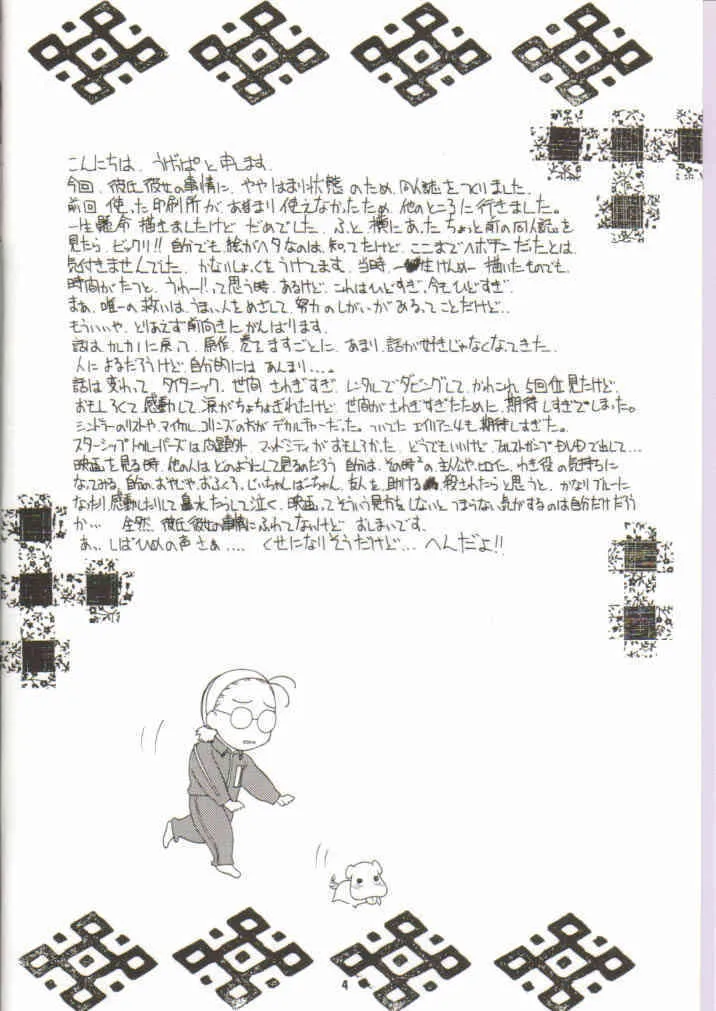 こんにちは、うげっぱと申します。
今回、彼氏彼女の事情に、ややはまり状態のため、同人誌をつくりました。
前回使った印刷所が、あまり使えなかったため、他のところに行きました。
一生懸命描きましたけど、だめでした、ふと横にあったちょっと前の同人誌を
見たら、ビックリ!!自分でも絵がヘタなのは、知ってたけど、ここまでヘボチーだたとは
気付きませんでした、かないしょっくをうけてます。当時、一生けんめー描いたものでも、
時間がたつと、うわー!!って思う時、あるけど、これはひどすぎ、今もひどすぎ。
まぁ、唯一の救いは、うまい人をめざして、努力のしがいがあるってことだけど…
もういいや、とりあえず前向きにがんばります。
話はカレカノに戻って、原作、巻をますごとに、あまり、話が好きじゃなくなてきた。
人によるだろうけど、自分的にはあんまり…。
話は変わって、タイタニック、世間さわぎすぎ、レンタルでダビングして、かれこれ5回位見たけど、
おもしろくて感動して涙がちょちょぎれたけど、世間がさわぎすぎたために、期待しすぎてしまった。
シンドラーのリストや、マイケル、コリンズの方がデカルチャーだった。ついでにエイリアン4も期待しすぎた。
スターシップトゥルーパーズは問題外、マッドシティがおもしろかた、どうでもいいけど、フォレストガンプDVDで出して…
映画を見る時、他の人はどのようにして見るのだろう、自分は、その時々の主人公やヒロイン、わき役の気持ちに
なってみる、自分のおやじや、おふくろ、じいちゃんばーちゃん、友人を助ける、殺されたらと思うと、かなりブルーに
なたり、感動したりして鼻水たらして泣く、映画ってそういう見方をしないと、つまらない気がするのは自分だけだろう
か… 全然、彼氏彼女の事情にふれてないけど、おしまいです。
あ、しばひめの声さぁ…. くせになりそうだけど… へんだよ!!
4